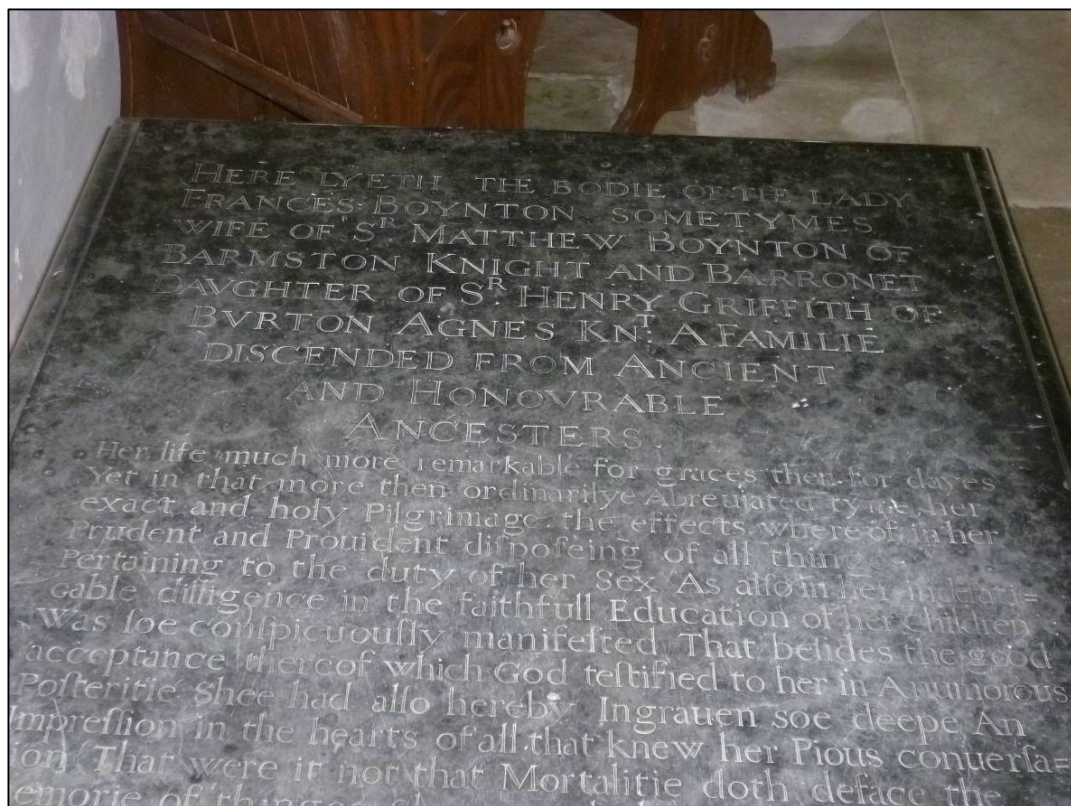 HERE LYETH THE BODIE OF THE LADY
FRANCES BOYNTON SOMETYMES
WIFE OF SR MATTHEW BOYNTON OF
BARMSTON KNIGHT AND BARRONET
DAVGHTER OF SR HENRY GRIFFITH OF
BVRTON AGNES KNT A FAMILIE
DISCENDED FROM ANCIENT
AND HONOVRABLE
ANCESTERS.
Her life much more remarkable for graces then for dayes
Yet in that more then ordinarilye Abreuiated tyme, her
exact and holy Pilgrimage the effects where of in her
Prudent and Prouident diſpoſeing of all thin
Pertaining to the duty of her Sex As alſo in her indefati=
gable diſſigence in the faithfull Education of her Children
Was ſoe conſpicuouſly manifeſted That beſides the good
acceptance thereof which God teſtified to her in Anumorous
Poſteritie Shee had alſo hereby Ingrauen soe deepe An
Impreſſion in the hearts of all that knew her Pious conuerſa=
ion That were it not that Mortalitie doth deface the
emorie of thinges